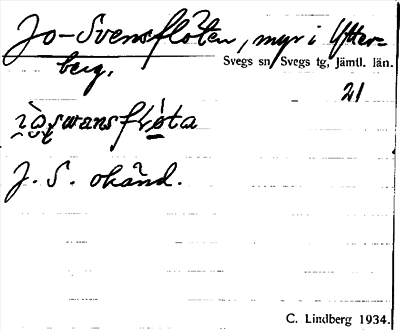 Jo-Svensflöten, myr i Ytter-
berg.
Svegs sn, Svegs tg, Jämtl. län.
21
J. S. okänd.
C. Lindberg 1934.